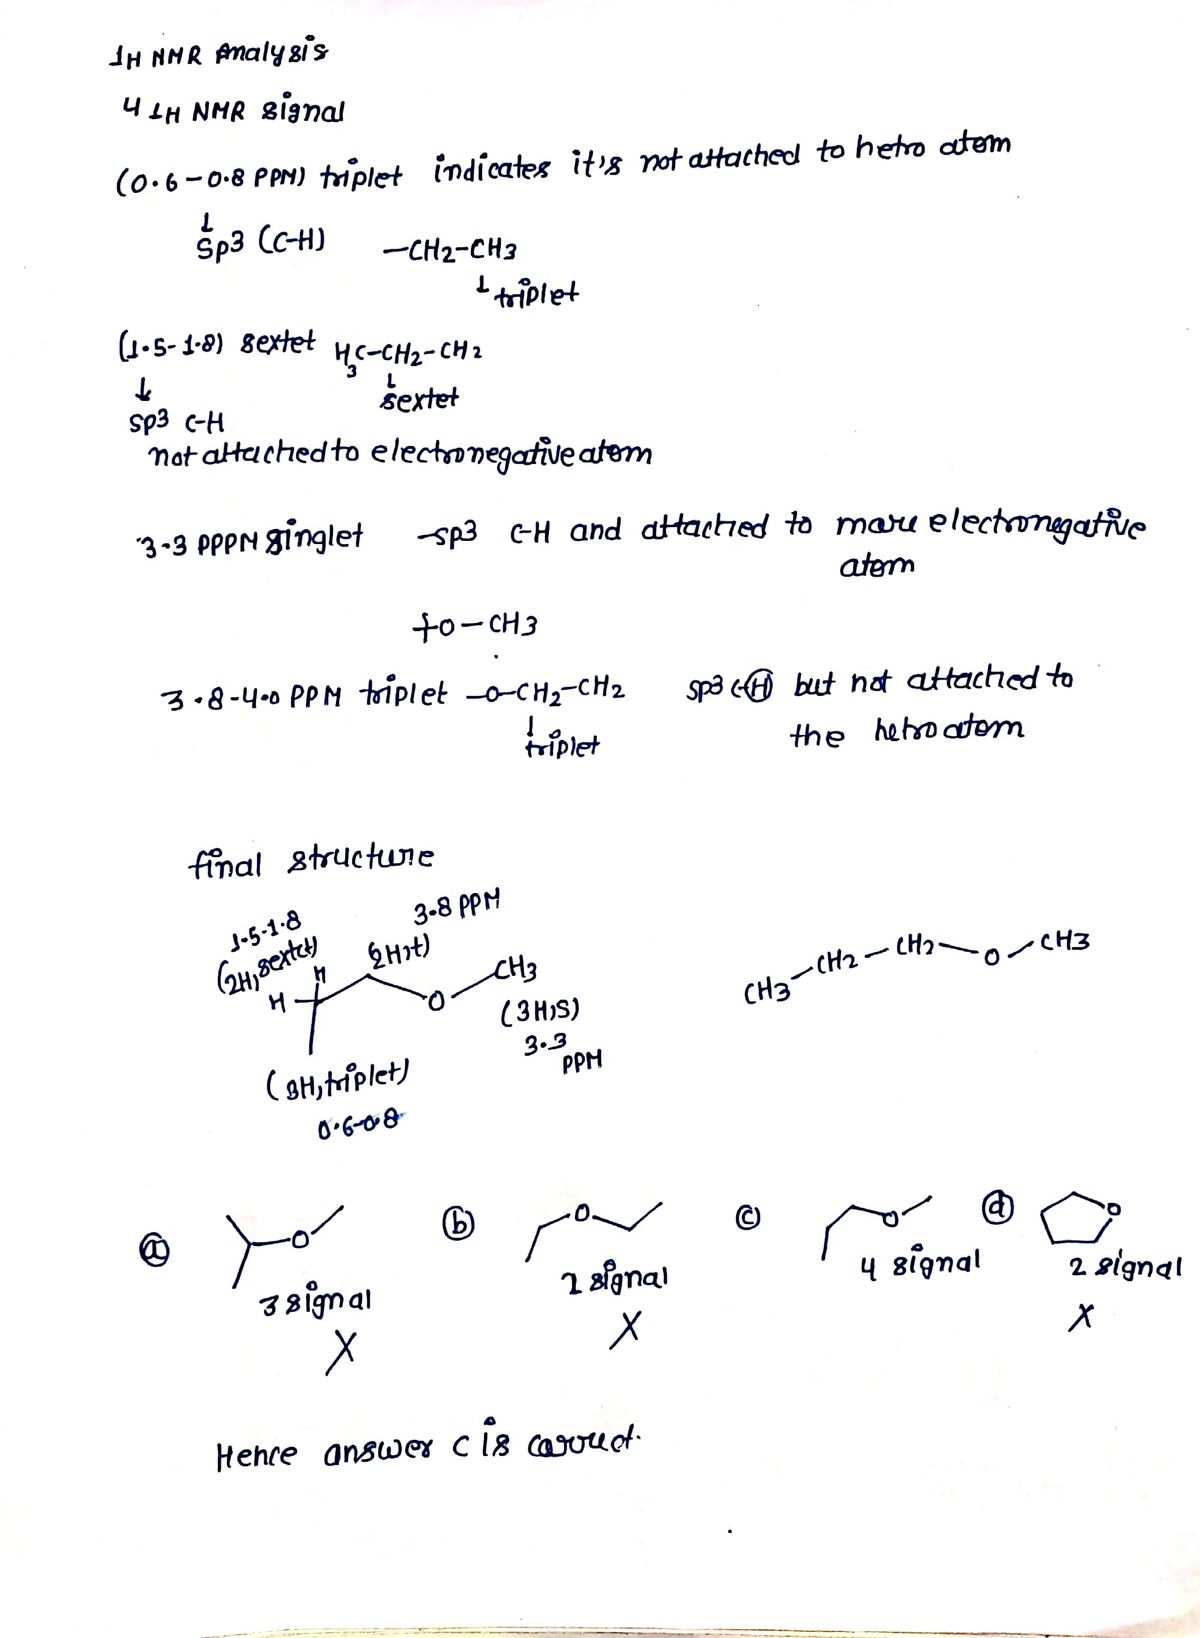 1H NMR Analysis
4 1H NMR signal
(0.6-0.8 PPM) triplet indicates it's not attached to hetro atom
↓
sp3 (C-H) -CH2-CH3
↓ triplet
(1.5-1.8) sextet H3C-CH2-CH2
↓ ↓
sp3 C-H sextet
not attached to electronegative atom
3.3 PPPM singlet -sp3 C-H and attached to more electronegative
atom
+O-CH3
3.8-4.0 PPM triplet -O-CH2-CH2 sp3 C-H but not attached to
↓
triplet the hetro atom
final structure
1.5-1.8 3.8 PPM
(2H, sextet) (2H,t)
H H O CH3
(3H,S)
3.3
PPM
(3H, triplet)
0.6-0.8
CH3-CH2-CH2-O-CH3
(a) O (b) O (c) O (d) O
3 signal 2 signal 4 signal 2 signal
X X X
Hence answer C is corruct.